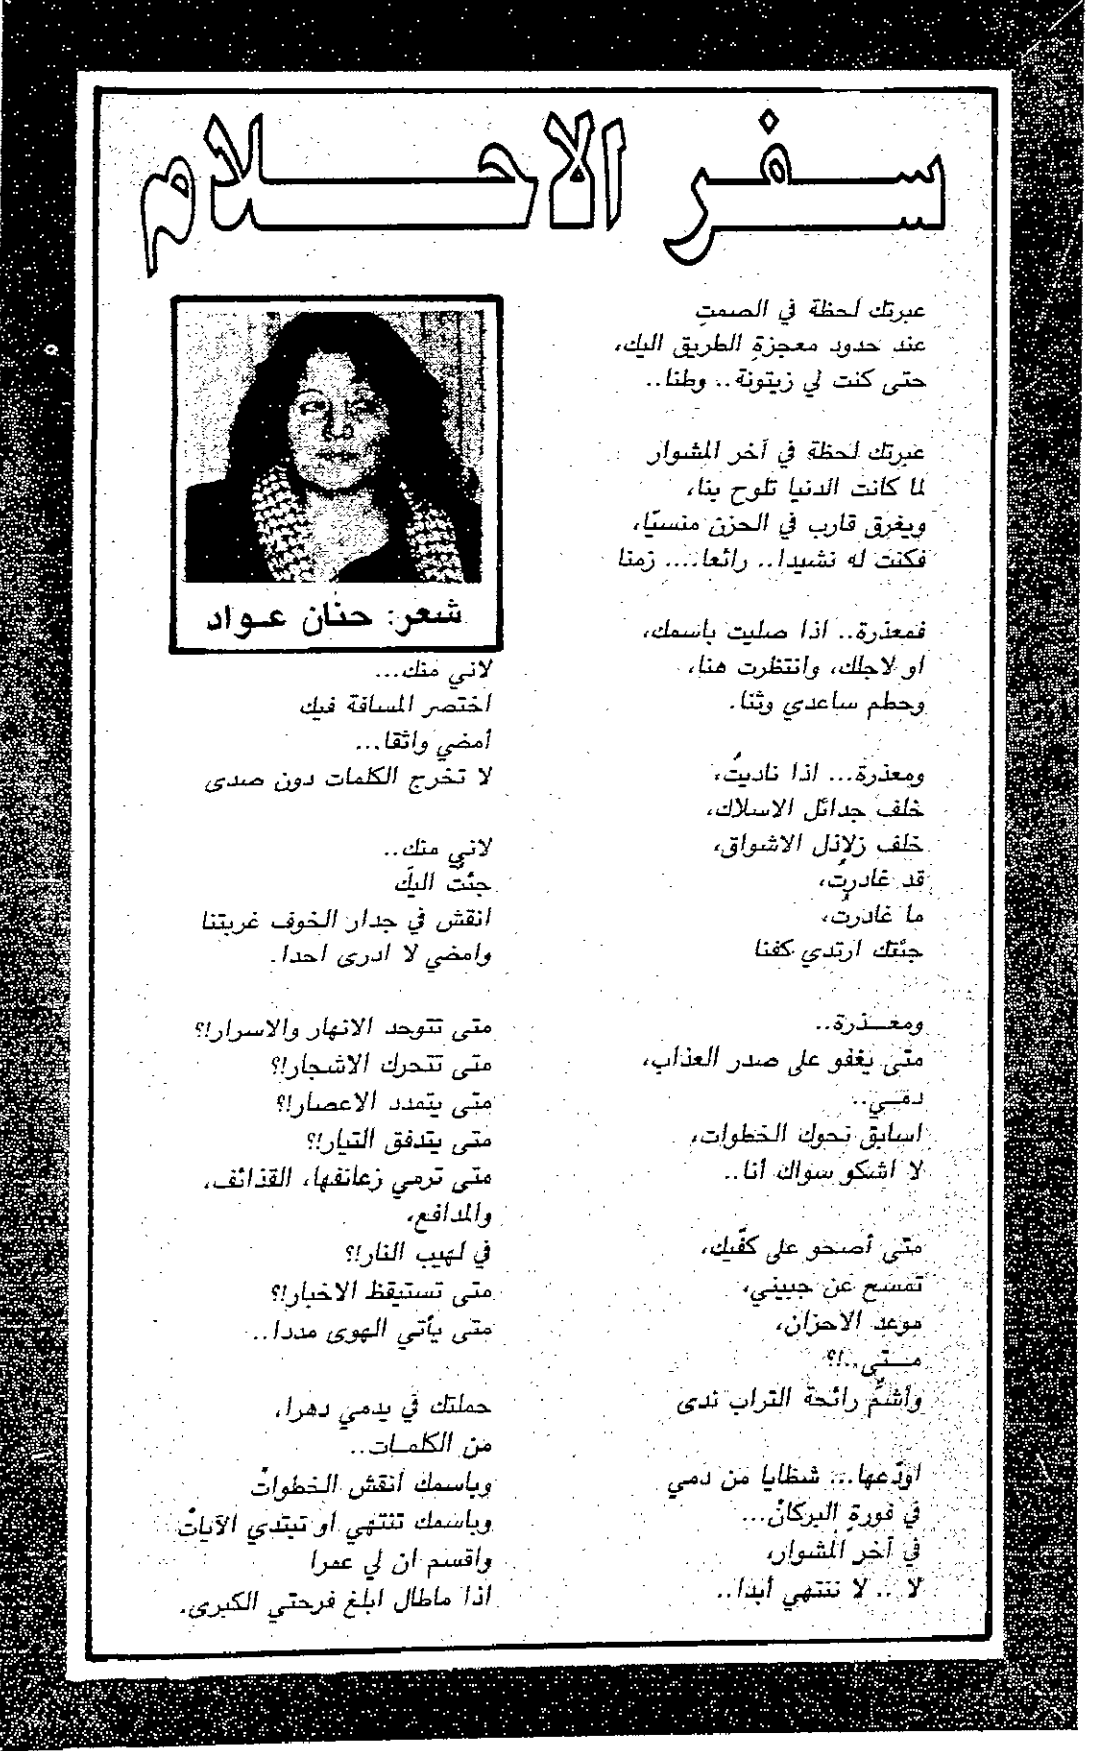 سفر الاحلام
عبرتك لحظة في الصمتِ
عند حدود معجزةِ الطريق اليك،
حتى كنت لي زيتونة.. وطنا..
عبرتك لحظة في آخر المشوار
لما كانت الدنيا تلوح بنا،
ويغرق قارب في الحزن منسيّا،
فكنت له نشيدا.. رائعا.... زمنا
فمعذرة.. اذا صليت باسمك،
او لاجلك، وانتظرت هنا،
وحطم ساعدي وثنا.
ومعذرة... اذا ناديتُ،
خلف جدائل الاسلاك،
خلف زلازل الاشواق،
قد غادرتُ،
ما غادرتُ،
جئتك ارتدي كفنا
ومعـــذرة..
متى يغفو على صدر العذاب،
دمــي..
اسابق نحوك الخطوات،
لا اشكو سواك أنا..
متى أصحو على كفّيك،
تمسح عن جبيني،
موعد الاحزان،
مــتى..!؟
وأشمُّ رائحة التراب ندى
اودّعها... شظايا من دمي
في فورةِ البركانْ...
في آخر المشوار،
لا .. لا ننتهي أبدا..
شعر: حنان عـواد
لاني منك...
اختصر المسافة فيك
أمضي واثقا...
لا تخرج الكلمات دون صدى
لاني منك..
جئتُ اليكَ
انقش في جدار الخوف غربتنا
وامضي لا ادرى احدا.
متى تتوحد الانهار والاسرار!؟
متى تتحرك الاشجار!؟
متى يتمدد الاعصار!؟
متى يتدفق التيار!؟
متى ترمي زعانفها، القذائف،
والمدافع،
في لهيب النار!؟
متى تستيقظ الاخبار!؟
متى يأتي الهوى مددا..
حملتك في يدمي دهرا،
من الكلمـات..
وباسمك أنقش الخطواتْ
وباسمك تنتهي او تبتدي الآياتْ
واقسم ان لي عمرا
اذا ماطال ابلغ فرحتي الكبرى.